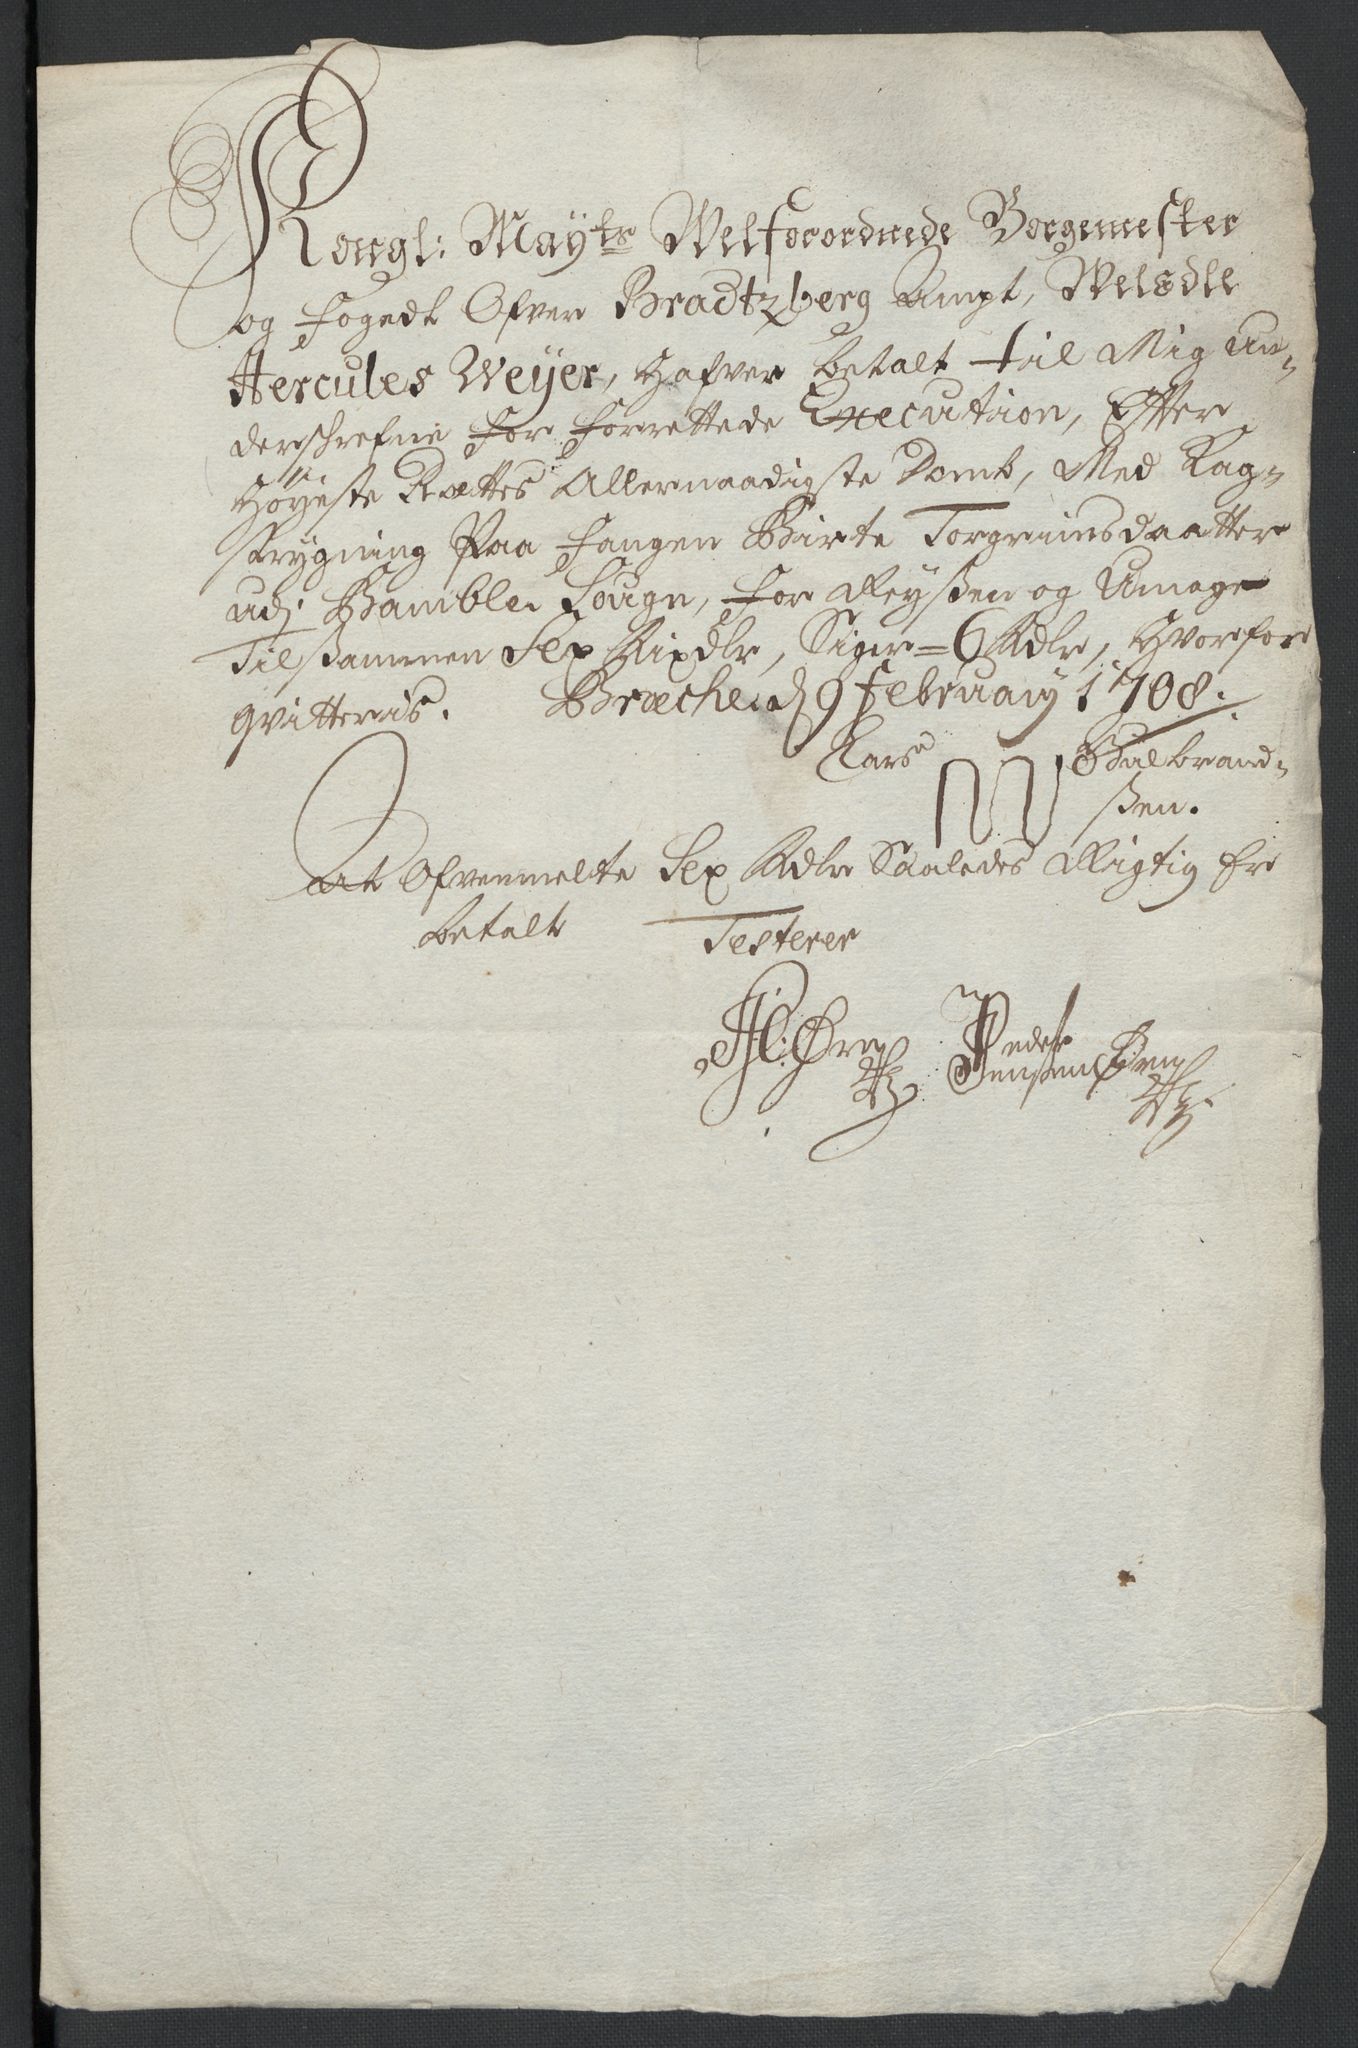 Kongl: Mayts Welforordnede Borgemester
og fogedt Ofver Bradtzberg Ampt, Weledle
Hercules Weyer, hafver betalt til Mig un-
derschrefne for forrettede Execution, Effter
Høyeste Rættes Allernaadigste Domb, Med Kag-
strygning Paa fangen Birte Torgrimsdaatter
udj Bamble Sougn, for Reyßen og Umage
Tilsammen Sex Rixdlr, Siger = 6 Rdlr, hvorfore
qvitteris. Bræche d 9 february 1708.
Lars Gulbrand-
ßen.
At Ofvenmelte Sex Rdlr Saaledes Rigtig Er
betalt Testerer
Peder
Jenßen